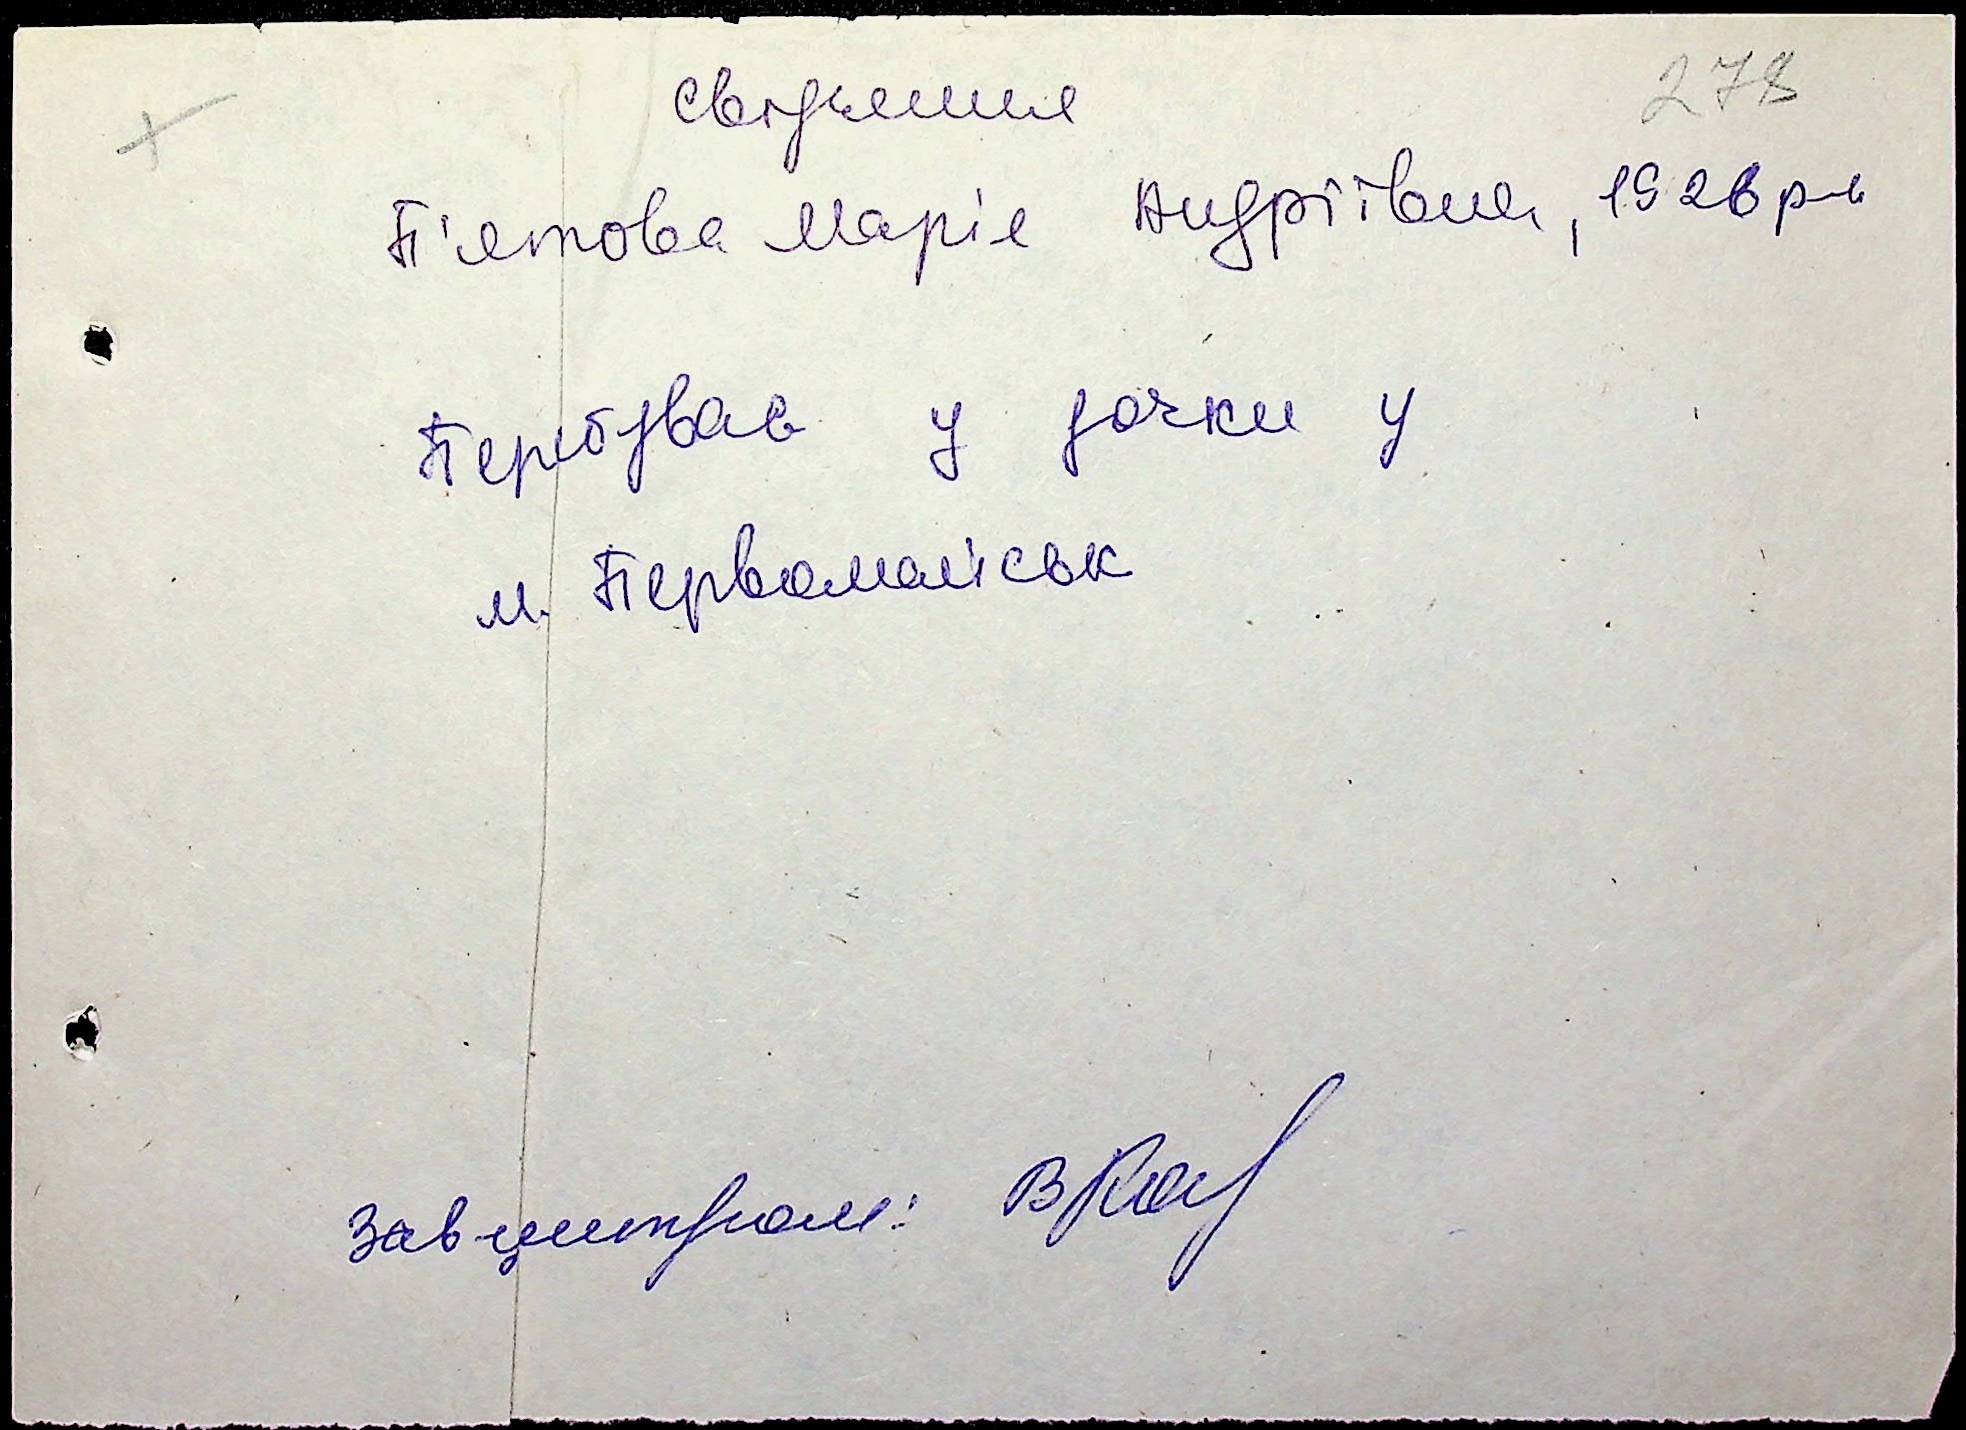 278
свідчення
П'ятова Марія Андріївна, 1926 р н
Перебував у дочки у
м. Первомайськ
Завцентром: